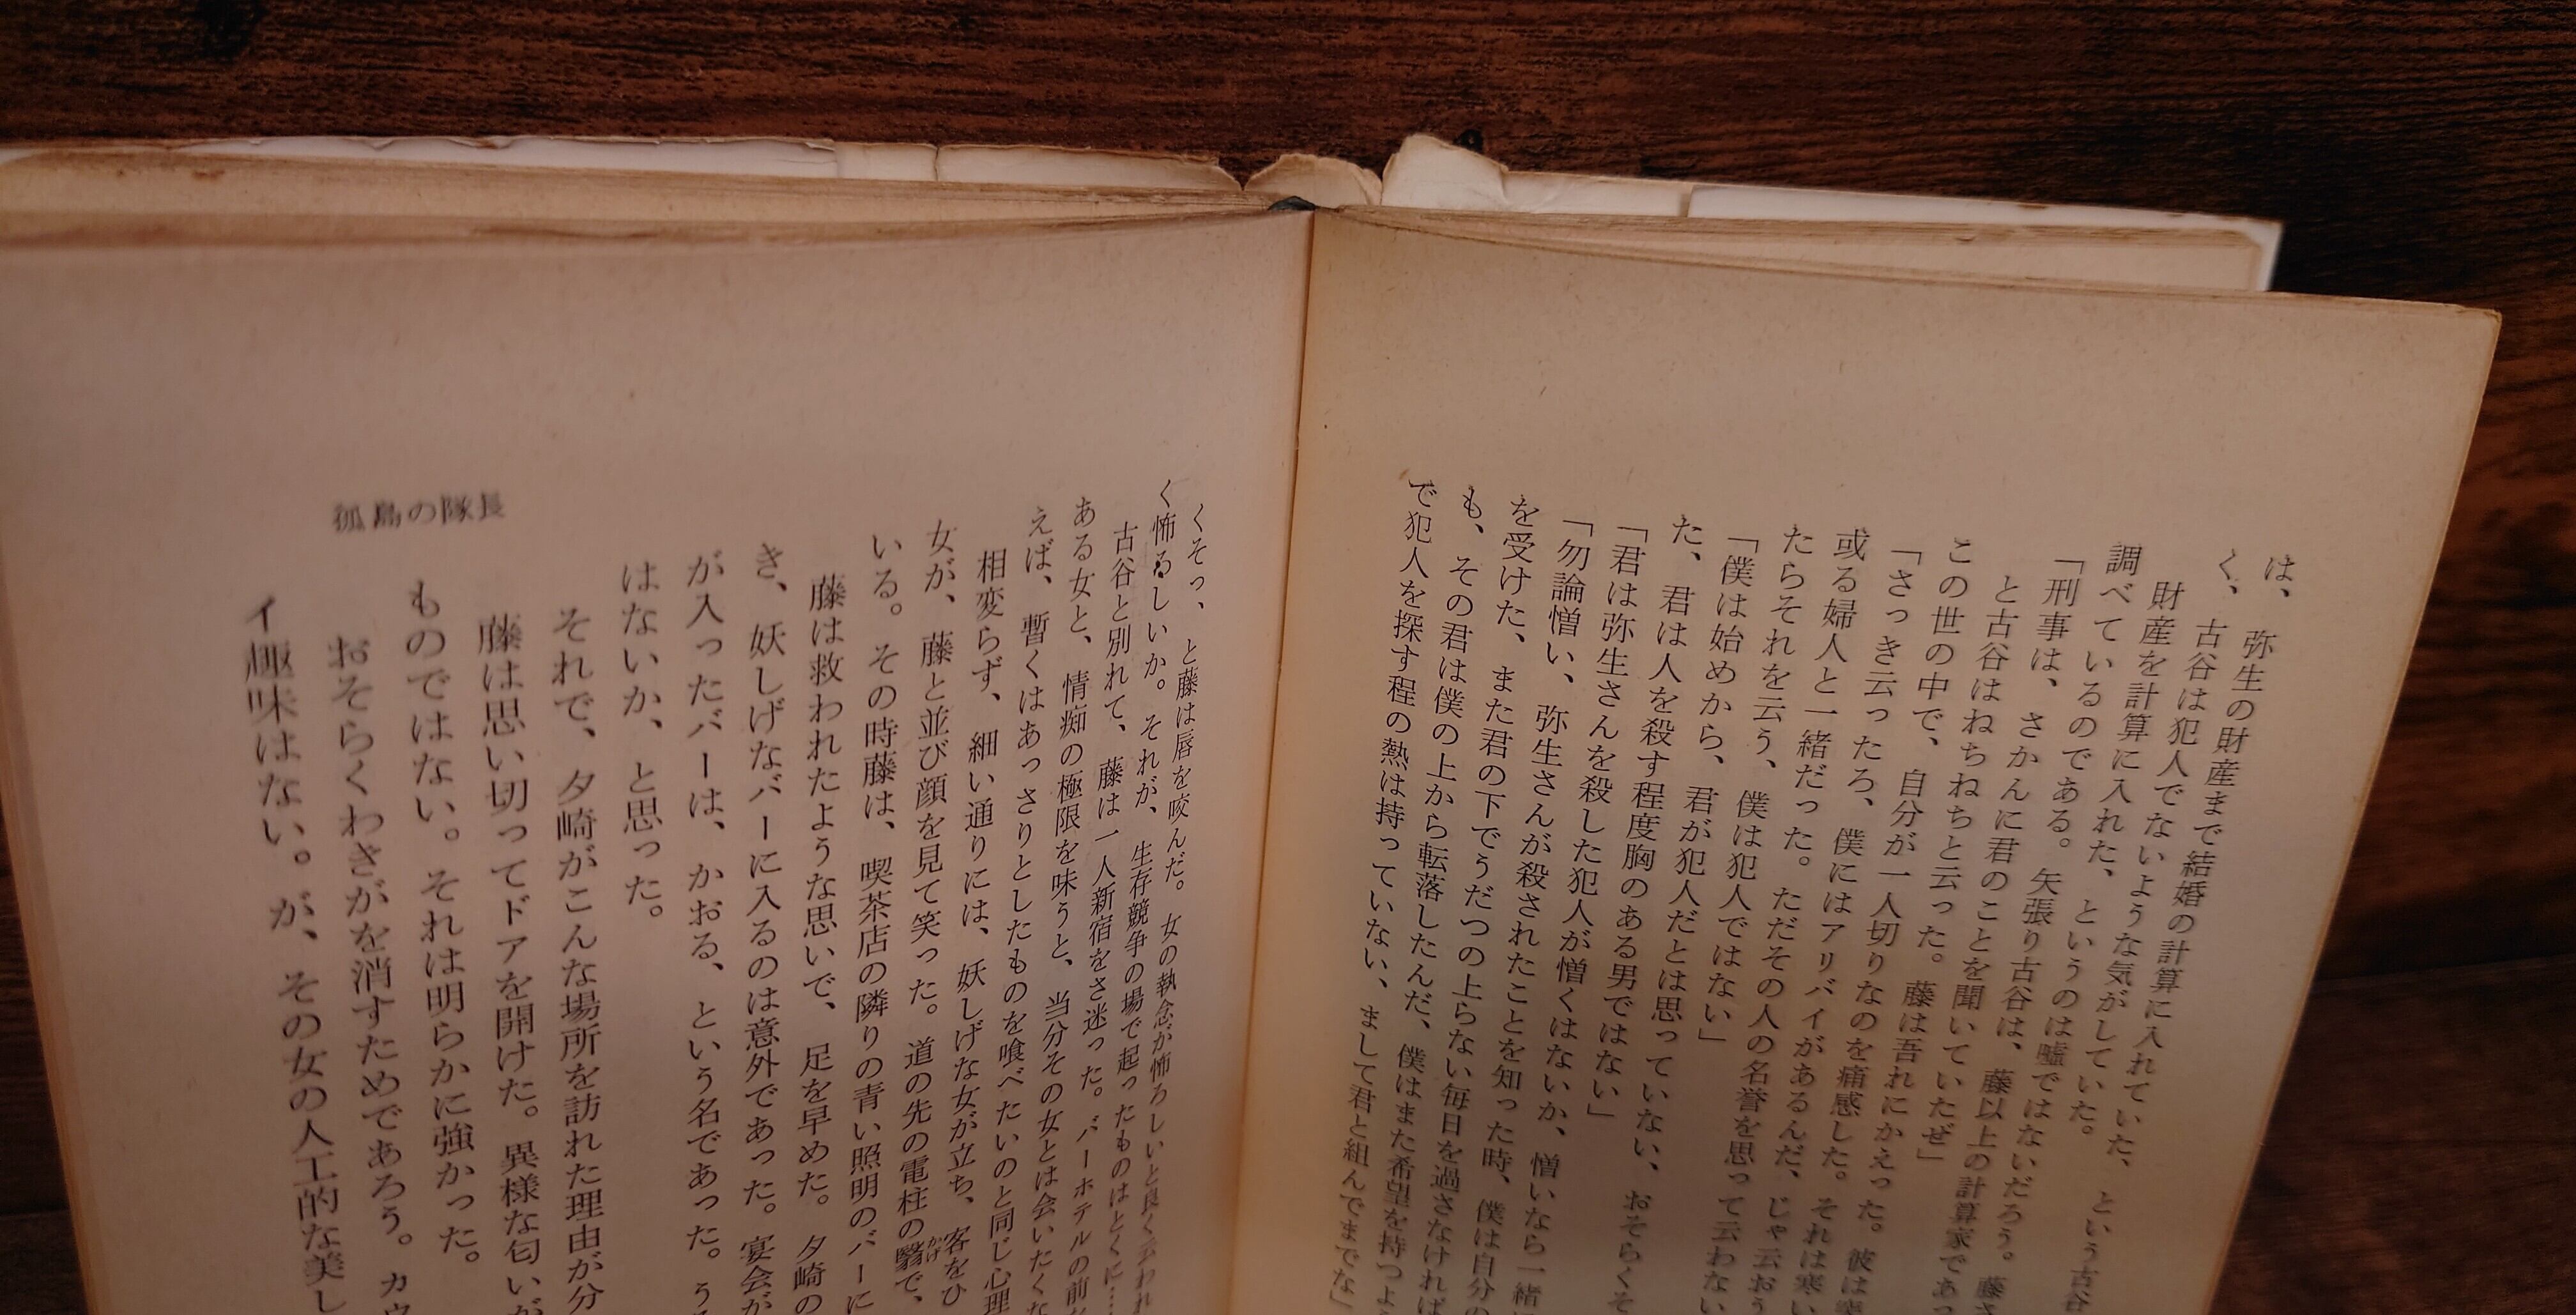 は、弥生の財産まで結婚の計算に入れていた、という古谷
く、古谷は犯人でないような気がしていた。
財産を計算に入れた、というのは嘘ではないだろう。藤さ
調べているのである。矢張り古谷は、藤以上の計算家であっ
「刑事は、さかんに君のことを聞いていたぜ」
と古谷はねちねちと云った。藤は吾れにかえった。彼は
この世の中で、自分が一人切りなのを痛感した。それは寒い
「さっき云ったろ、僕にはアリバイがあるんだ、じゃ云おう
或る婦人と一緒だった。ただその人の名誉を思って云わない
たらそれを云う、僕は犯人ではない」
「僕は始めから、君が犯人だとは思っていない、おそらくそ
た、君は人を殺す程度胸のある男ではない」
「君は弥生さんを殺した犯人が憎くはないか、憎いなら一緒
「勿論憎い、弥生さんが殺されたことを知った時、僕は自分の
を受けた、また君の下でうだつの上らない毎日を過さなければ
も、その君は僕の上から転落したんだ、僕はまた希望を持つよ
で犯人を探す程の熱は持っていない、まして君と組んでまでな」
くそっ、と藤は唇を咬んだ。女の執念が怖ろしいと良く云われ
く怖るしいか。それが、生存競争の場で起ったものはとくに…
古谷と別れて、藤は一人新宿をさ迷った。バーホテルの前
ある女と、情痴の極限を味うと、当分その女とは会いたくな
えば、暫くはあっさりとしたものを喰べたいのと同じ心理
相変らず、細い通りには、妖しげな女が立ち、客をひ
女が、藤と並び顔を見て笑った。道の先の電柱の翳で、
かげ
いる。その時藤は、喫茶店の隣りの青い照明のバーに
藤は救われたような思いで、足を早めた。夕崎の
き、妖しげなバーに入るのは意外であった。宴会が
が入ったバーは、かおる、という名であった。う
はないか、と思った。
それで、夕崎がこんな場所を訪れた理由が分
藤は思い切ってドアを開けた。異様な匂いが
ものではない。それは明らかに強かった。
おそらくわきがを消すためであろう。カウ
イ趣味はない。が、その女の人工的な美し
狐島の隊長